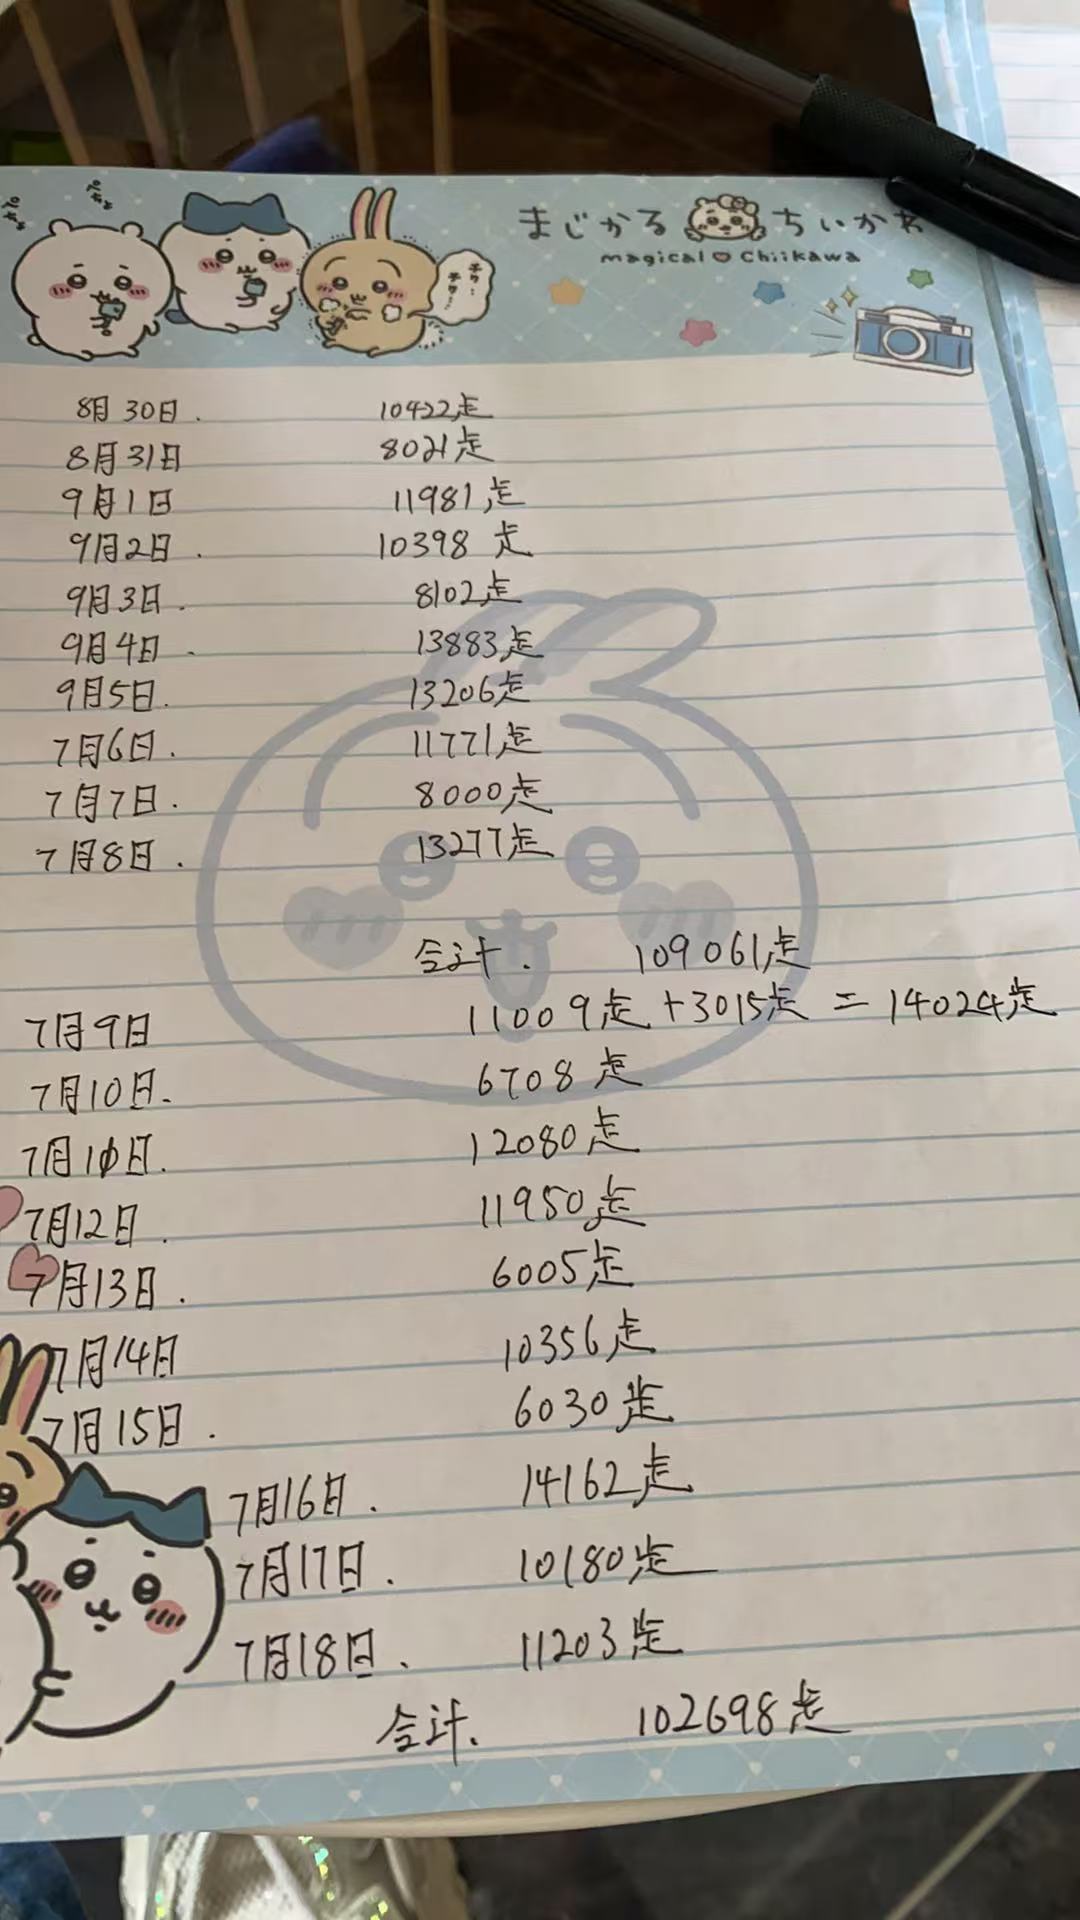 まじかる ちいかわ
magical Chiikawa
8月30日. 10422走
8月31日 8021走
9月1日 11981走
9月2日. 10398 走
9月3日. 8102走
9月4日. 13883走
9月5日. 13206走
7月6日. 11771走
7月7日. 8000走
7月8日. 13277走
合计. 109061走
7月9日 11009走 +3015走 = 14024走
7月10日. 6708走
7月10日. 12080走
7月12日. 11950走
7月13日. 6005走
7月14日 10356走
7月15日. 6030走
7月16日. 14162走
7月17日. 10180走
7月18日. 11203走
合计. 102698走